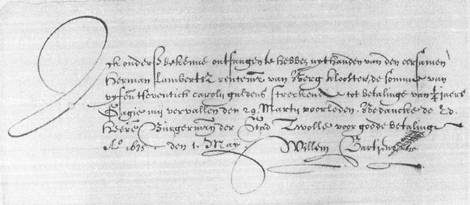 Ick onders. bekenne ontfangen te hebben uyt handen van den eersamen
Herman Lambertsz rentemr van Berg Klooster, de somme van
vyfen t'Seventich caroly guldens streckende tot betalinge van jaers
Gagie mij vervallen den 29 Martij voorleden. Bedancke de Ed.
Heere Burgermrn der Stad Zwolle voor goede betalinge
Ao. 1635 den 1. May Willem